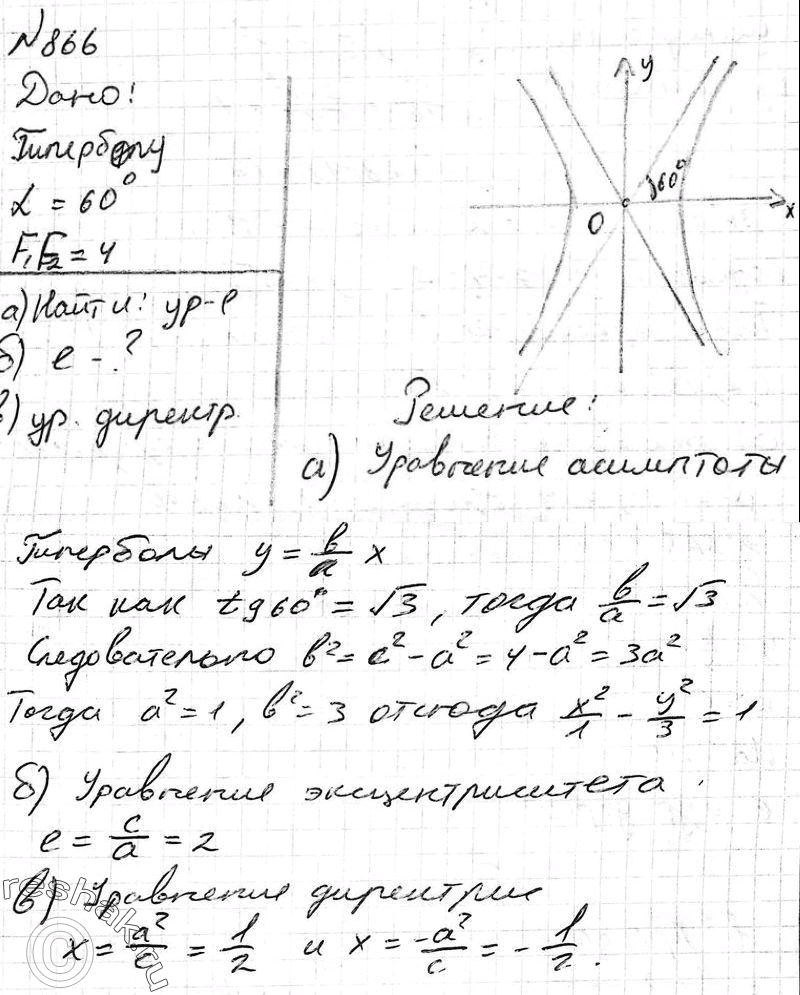 №866
Дано:
Гиперболу
α = 60°
F₁F₂ = 4
а) Найти: ур-е
б) e - ?
в) ур. директр.
y
60°
O
x
Решение:
а) Уравнение асимптоты
Гиперболы y = b/a x
Так как tg60° = √3, тогда b/a = √3
Следовательно b² = c² - a² = 4 - a² = 3a²
Тогда a² = 1, b² = 3 отсюда x²/1 - y²/3 = 1
б) Уравнение эксцентриситета.
e = c/a = 2
в) Уравнение директрис
x = a²/c = 1/2 и x = -a²/c = -1/2.
©reshak.ru